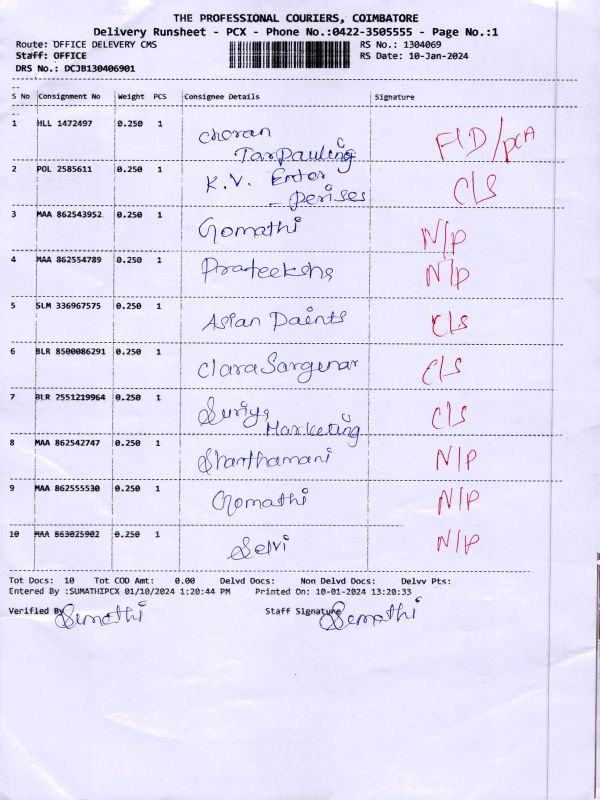 THE PROFESSIONAL COURIERS, COIMBATORE
Delivery Runsheet - PCX - Phone No.:0422-3505555 - Page No.:1
Route: OFFICE DELEVERY CMS RS No.: 1304069
Staff: OFFICE RS Date: 10-Jan-2024
DRS No.: DCJB130406901
S No Consignment No Weight PCS Consignee Details Signature
1 HLL 1472497 0.250 1 Choran F/D/PCA
Tarpauling
2 POL 2585611 0.250 1 K.V. Enter C/S
- perises
3 MAA 862543952 0.250 1 Gomathi N/P
4 MAA 862554789 0.250 1 Prateeksha N/P
5 SLM 336967575 0.250 1 Asian Paints C/S
6 BLR 8500086291 0.250 1 Clara Sargunar C/S
7 BLR 2551219964 0.250 1 Suriya C/S
Marketing
8 MAA 862542747 0.250 1 Shanthamani N/P
9 MAA 862555530 0.250 1 Gomathi N/P
10 MAA 863025902 0.250 1 Selvi N/P
Tot Docs: 10 Tot COD Amt: 0.00 Delvd Docs: Non Delvd Docs: Delvv Pts:
Entered By :SUMATHIPCX 01/10/2024 1:20:44 PM Printed On: 10-01-2024 13:20:33
Verified By Sumathi Staff Signature Sumathi